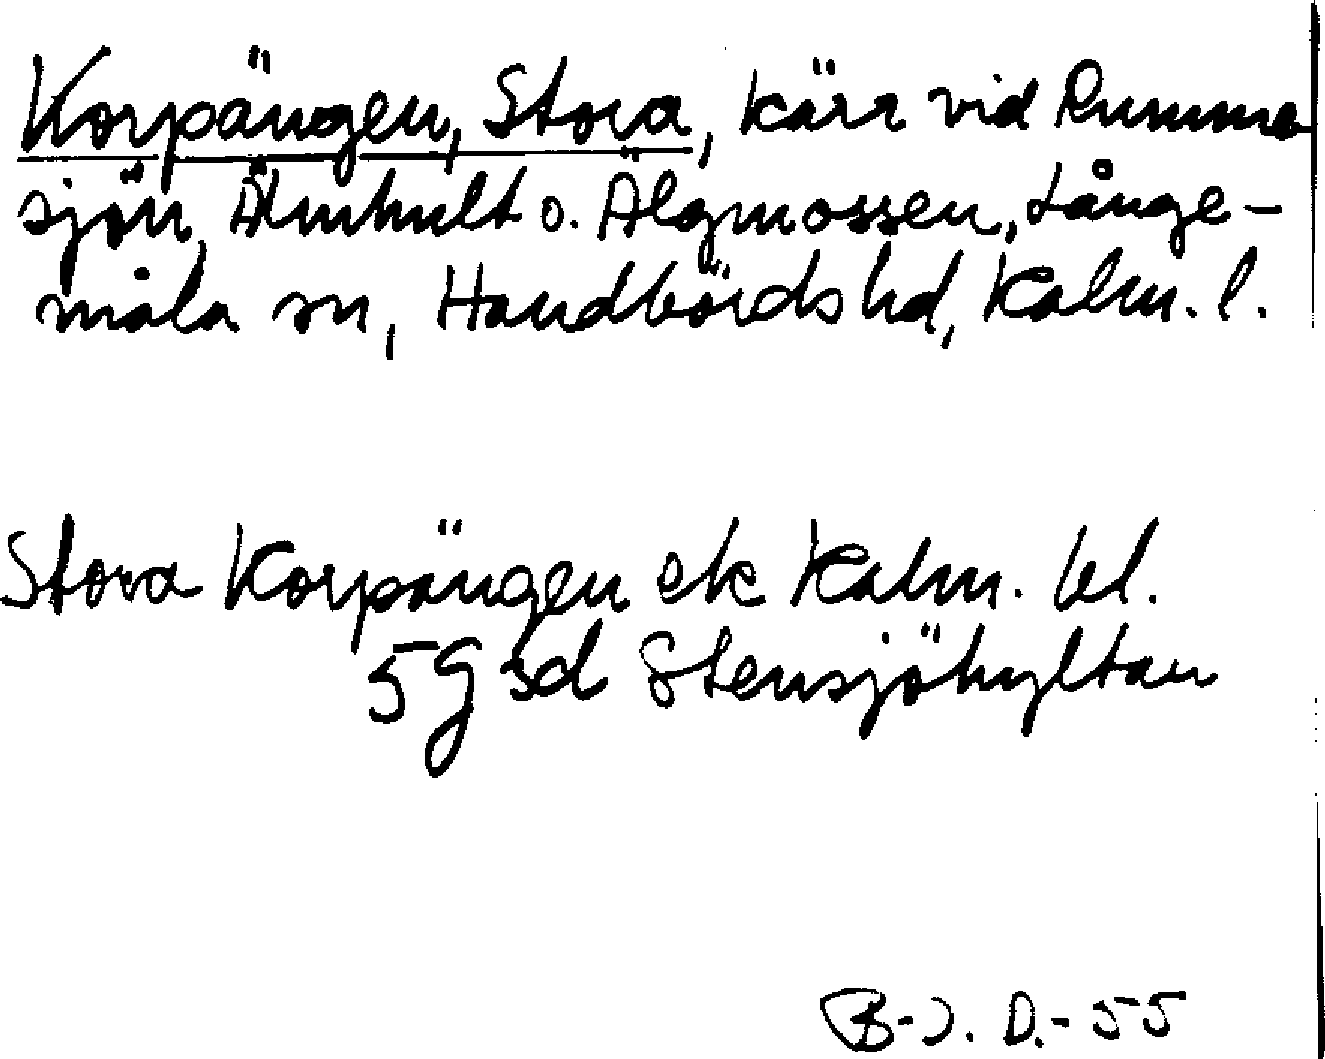 Korpängen, Stora, kärr vid Rumme
sjön, Älmhult o. Älgmossen, Långe-
måla sn, Handbörds hd, Kalm. l.
Stora Korpängen ek Kalm. bl.
5 g sd Stensjöhyltan
B-J. D.- 55